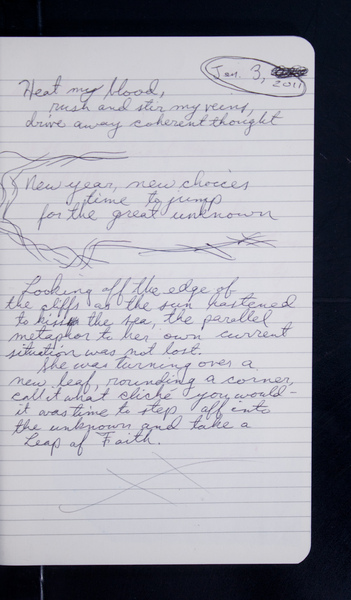 Jan. 3, 2011
Heat my blood,
rush and stir my veins,
drive away coherent thought
New year, new choices
time to jump
for the great unknown
Looking off the edge of
the cliffs as the sun hastened
to kiss the sea, the parallel
metaphor to her own current
situation was not lost.
She was turning over a
new leaf, rounding a corner,
call it what cliché you would –
it was time to step off into
the unknown and take a
Leap of Faith.